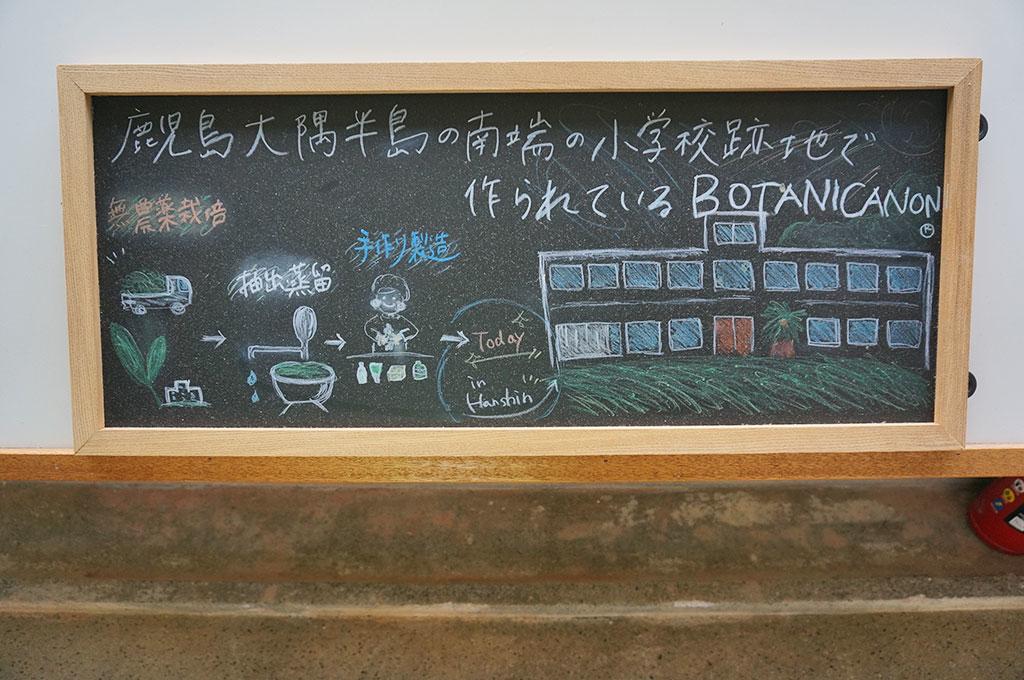 鹿児島大隅半島の南端の小学校跡地で
作られているBOTANICANON
®
無農薬栽培
抽出蒸留
手作り製造
Today
in
Hanshin